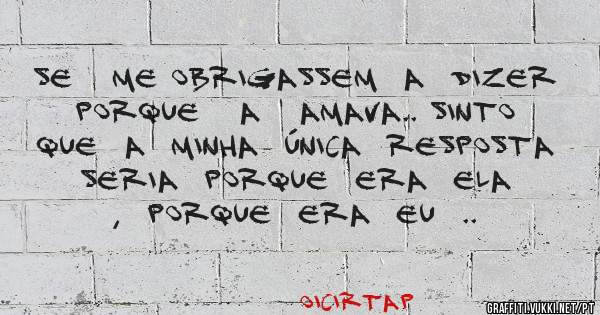 SE ME OBRIGASSEM A DIZER
PORQUE A AMAVA.. SINTO
QUE A MINHA ÚNICA RESPOSTA
SERIA PORQUE ERA ELA
, PORQUE ERA EU ..
OICIRTAP
GRAFFITI.VUKKI.NET/PT